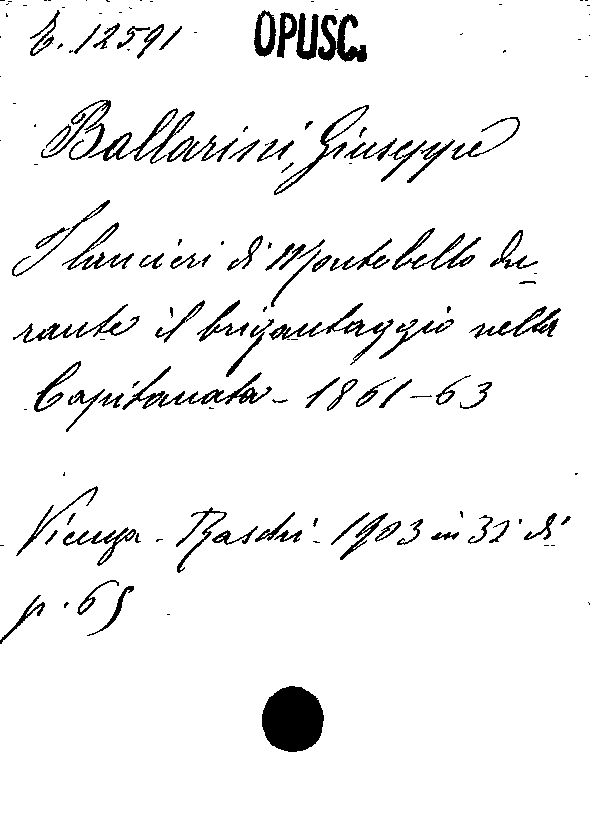 E. 12591 OPUSC.
Ballarini, Giuseppe
I lancieri di Montebello du-
rante il brigantaggio nella
Capitanata - 1861-63
Vicenza - Raschi - 1903 in 32° di
p. 65